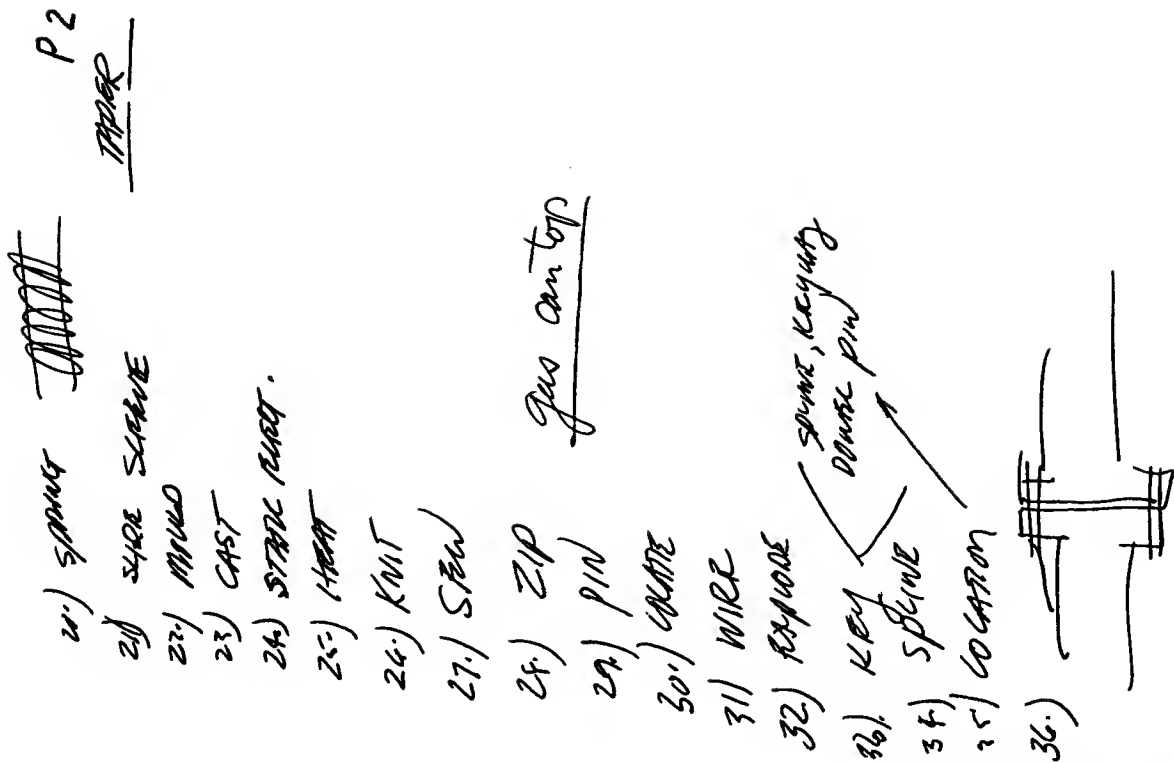 P 2
TAPER
20.) SPRING
21) SURE SCREWE
22.) MOULD
23) CAST
24.) STATIC ELECT.
25.) HEAT
26.) KNIT
27.) SEW
28.) ZIP
29.) PIN
30.) LOCATE
31) WIRE
32.) EXPLODE
33). KEY
34) SPLINE
35) LOCATION
36.)
Gas can top
SPLINE, KEYWAY
DOWEL PIN